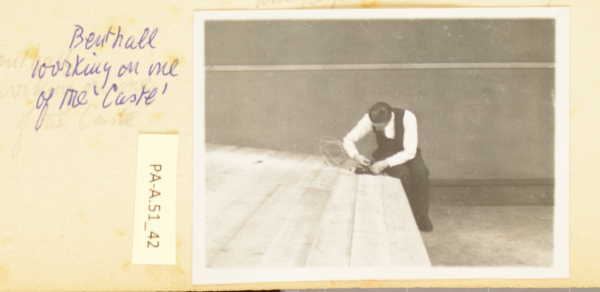 Benthall
working on one
of the 'Caste'
PA-A.51_42